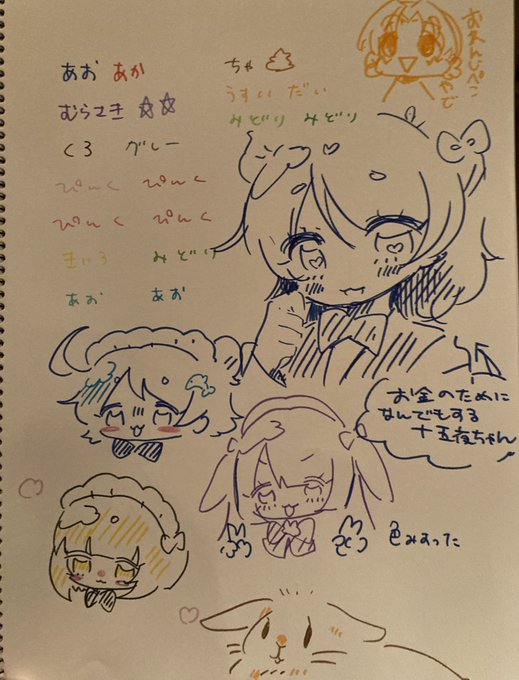 あお あか
むらさき
くろ グレー
ぴんく ぴんく
ぴんく ぴんく
きいろ みどり
あお あお
ちゃ
うすい だい
みどり みどり
お金のために
なんでもする
十五夜ちゃん